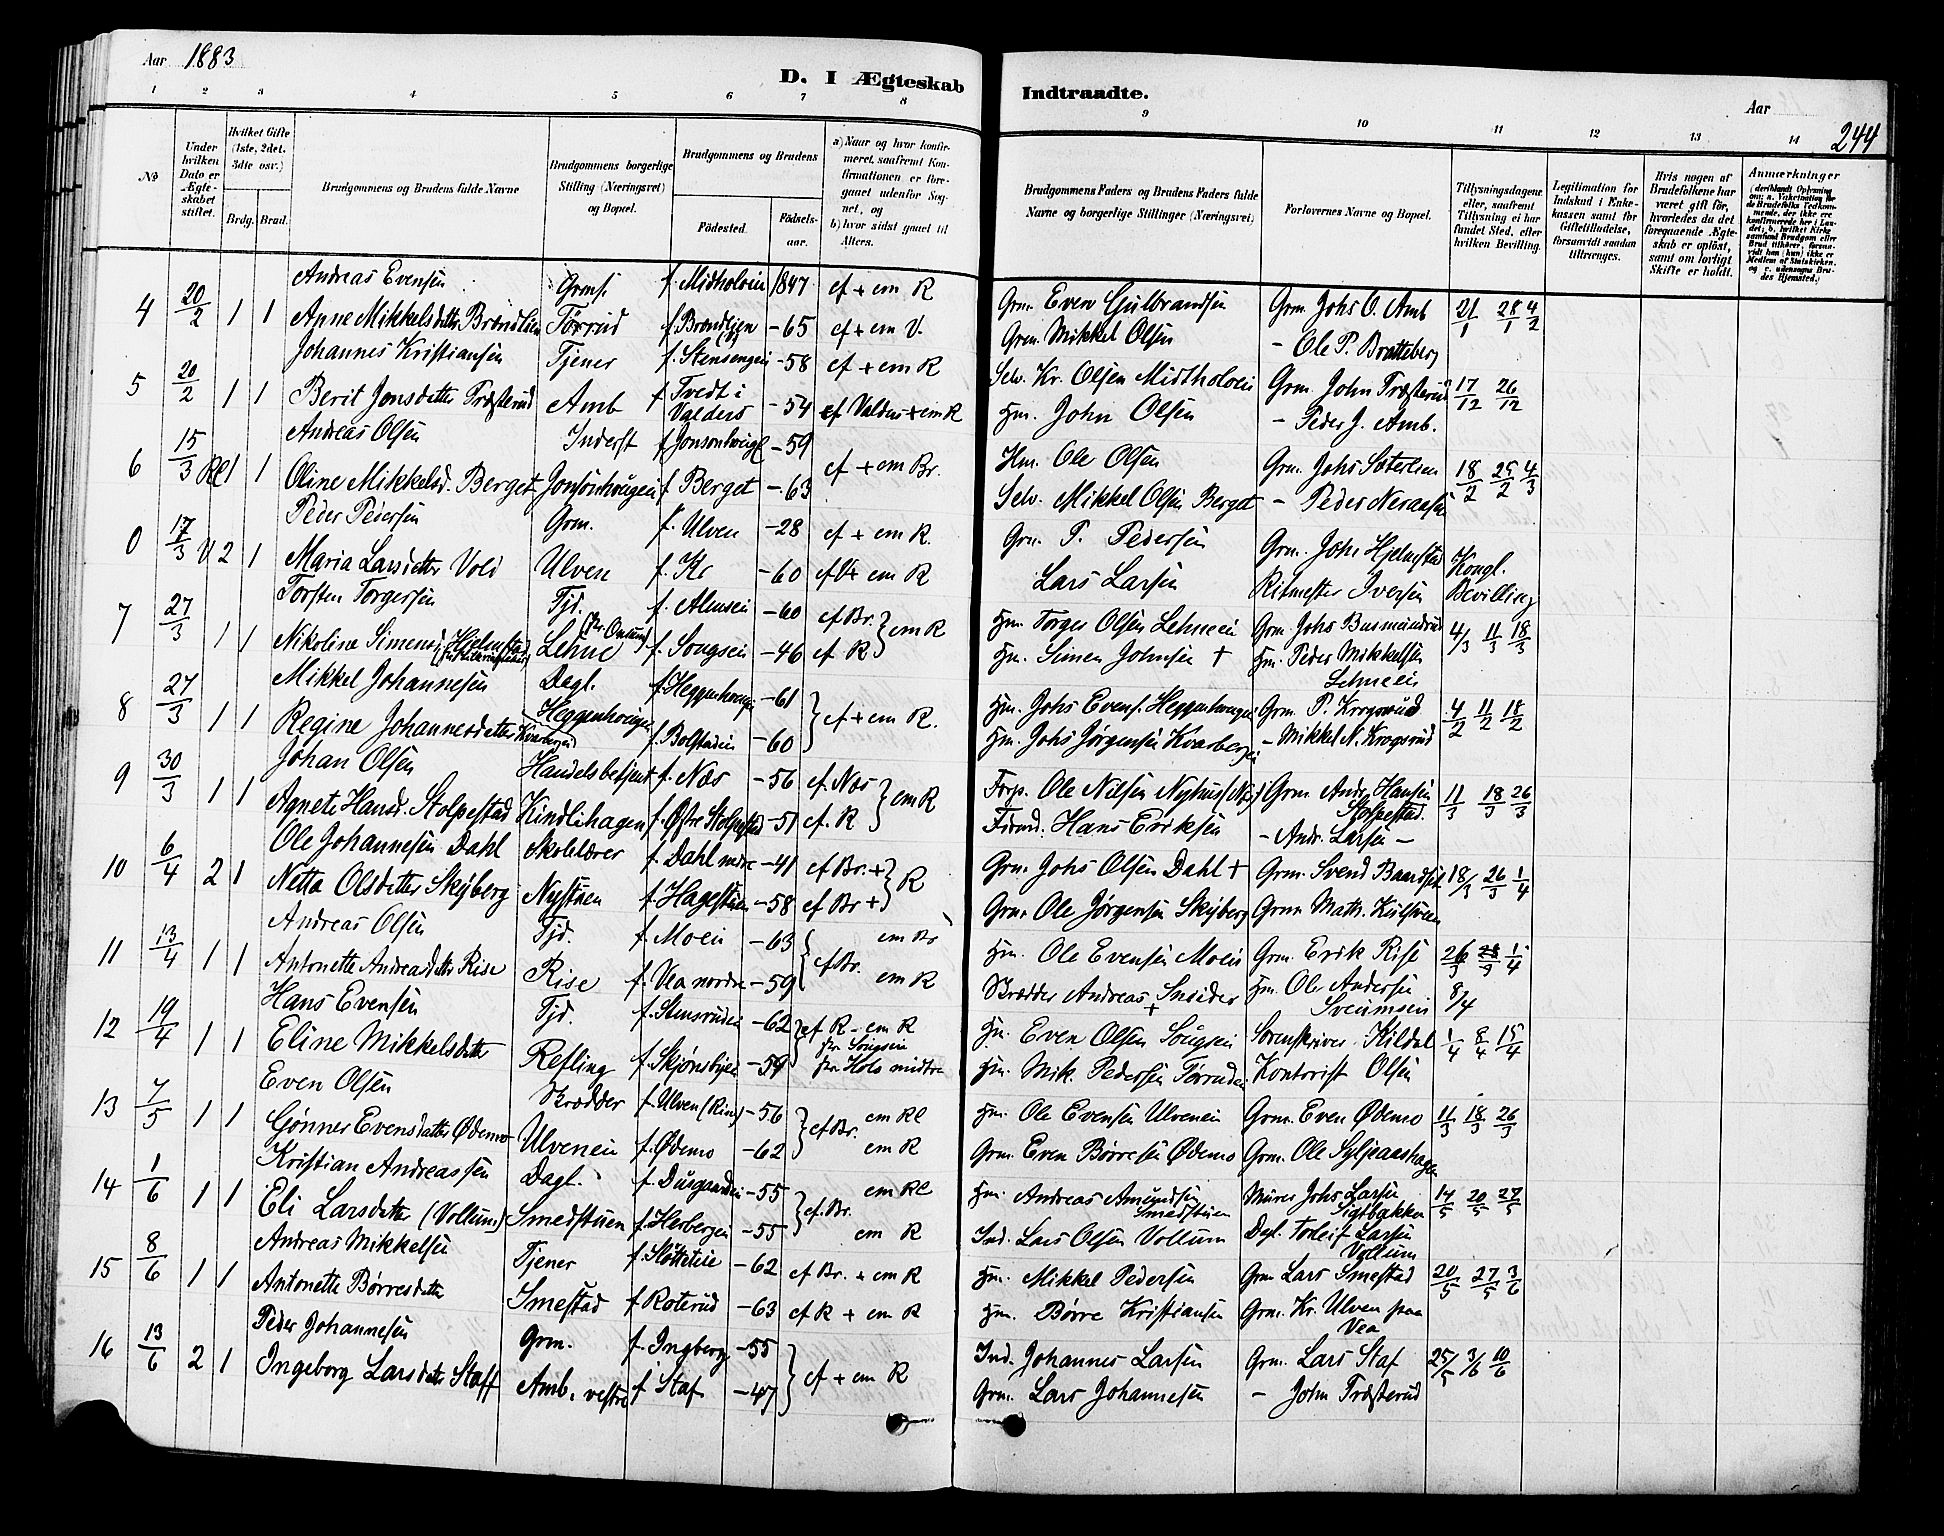 Aar 1883
D. I Ægteskab Indtraadte.
Aar
244
1 2 3 4 5 6 7 8 9 10 11 12 13 14
No
Under hvilken Dato er Ægteskabet stiftet.
Hvilket Gifte (1ste, 2det, 3dte osv.)
Brdg. Brud.
Brudgommens og Brudens fulde Navne
Brudgommens borgerlige Stilling (Næringsvei) og Bopæl.
Brudgommens og Brudens
Födested.
Födselsaar.
a) Naar og hvor konfirmeret, saafremt Konfirmationen er foregaaet udenfor Sognet, og
b) hvor sidst gaaet til Alters.
Brudgommens Faders og Brudens Faders fulde Navne og borgerlige Stillinger (Næringsvei)
Forlovernes Navne og Bopæl.
Tillysningsdagene eller, saafremt Tillysning ei har fundet Sted, efter hvilken Bevilling.
Legitimation for Indskud i Enkekassen samt for Giftetilladelse, forsaavidt saadan tiltrænges.
Hvis nogen af Brudefolkene har været gift før, hvorledes da det foregaaende Ægteskab er oplöst, samt om lovligt Skifte er holdt.
Anmærkninger
4 20/2 1 1 Andreas Evensen Grms. f. Midtholoein 1847 cf + em R Grm. Even Gulbrandsen Grm. Johs O. Amb 21/1 28/1 4/2
Anne Mikkelsdatter Brændlien Tørrud f. Brændlien -65 cf + em V. Grm. Mikkel Olsen - Ole P. Bratteberg
5 20/2 1 1 Johannes Kristiansen Tjener f. Stensengen -58 cf + em R Selv. Kr. Olsen Midtholoein Grm. John Træsterud 17/12 26/12
Berit Jonsdatter Træsterud Amb f. Tvedt i Valders -54 cf Valders + em R Hm. John Olsen - Peder J. Amb.
6 15/3 Rl 1 1 Andreas Olsen Inderst f. Jonsonhougl -59 cf + em Br. Hm. Ole Olsen Grm. Johs Sæterlien 18/2 25/2 4/3
Oline Mikkelsd. Berget Jonsonhougen f. Berget -63 Selv. Mikkel Olsen Berget - Peder Neraasen
0 17/3 V 2 1 Peder Pedersen Grm. f. Ulven -28 cf + em R. Grm. P. Pedersen Grm. Johs Hjelmstad Kongl.
Maria Larsdatter Vold Ulven f. Kr -60 cf V + em R Lars Larsen Ritmester Iversen Bevilling
7 27/3 1 1 Torsten Torgersen Tjd. f. Almsein -60 cf Br. } em R Hm. Torger Olsen Lehneein Grm. Johs Busmundrud 4/3 11/3 18/3
Nikoline Simensd. Hjelmstad Lehne f. Sougsein -46 cf R Hm. Simen Johnsen + Hm. Peder Mikkelsen Lehneein
8 27/3 1 1 Mikkel Johannesen Dagl. f. Heggenhougen -61 } cf + em R. Hm. Johs Evens. Heggenhaugen Grm. P. Krogsrud 4/2 11/2 18/2
Regine Johannesdatter Kvarbergein Heggenhougen f. Bolstadein -60 Hm. Johs Jørgensen Kvarbergein - Mikkel N. Krogsrud
9 30/3 1 1 Johan Olsen Handelsbetjent f. Næs -56 cf. Næs } em R Forp. Ole Nilsen Nyhus (Næs) Grm. Andr. Hansen Stolpestad. 11/3 18/3 26/3
Agnete Hansd. Stolpestad Kindlihagen f. Østre Stolpestad -51 cf. R Hans Eriksen - Andr. Larsen -
10 6/4 2 1 Ole Johannesen Dahl Skolelærer f. Dahl nedre -41 cf Br. + } R Grm Johs Olsen Dahl + Grm. Svend Baardset 18/3 26/3 1/4
Netta Olsdatter Skyberg Nystuen f. Hagestuen -58 cf Br + Grm Ole Jørgensen Skyberg Grm Math. Kulsveen
11 13/4 1 1 Andreas Olsen Tjd. f. Moein -63 { cf Br. em Br Hm. Ole Evensen Moein Grm. Erik Rise 26/3 1/4
Antonette Andreasdatter Rise Rise f. Vea nordre -59 em R Skrædder Andreas Sneider + Hm. Ole Andersen Sveumsein 8/4
12 19/4 1 1 Hans Evensen Tjd. f. Stensruden -62 } cf R - em R fra Sougsein Hm. Even Olsen Sougsein Sorenskriver Kildal 1/4 8/4 15/4
Eline Mikkelsdatter Refling f. Skjønsbyen -59 fra Hols midtre Hm. Mik. Pedersen Tørruden Kontorist Olsen
13 7/5 1 1 Even Olsen Skrædder f. Ulven (Ring) -56 } cf Br. em Rl Hm. Ole Evensen Ulvenein Grm. Even Ødemo 11/3 18/3 26/3
Gønner Evensdatter Ødemo Ulvenein f. Ødemo -62 em R Grm. Even Børresen Ødemo Grm. Ole Syljuaashagen
14 1/6 1 1 Kristian Andreassen Dagl. f. Dusgaarden -55 } cf. Br. em Rl Hm. Andreas Amundsen Smedstuen Murer Johs Larsen Sigtbakken 14/5 20/5 27/5
Eli Larsdatter (Vollum) Smedstuen f. Herbergen -55 em R Ind. Lars Olsen Vollum Dgl. Torleif Larsen Vollum
15 8/6 1 1 Andreas Mikkelsen Tjener f. Slotteteie -62 cf Br. + em R Hm. Mikkel Pedersen Grm Lars Smestad 20/5 27/5 3/6
Antonette Børresdatter Smestad f Roterud -63 cf R + em R Hm. Børre Kristiansen Grm. Kr. Ulven paa Vea
16 13/6 2 1 Peder Johannesen Grm. f. Ingberg -55 } cf + em R Ind. Johannes Larsen Grm. Lars Staf 25/5 3/6 10/6
Ingeborg Larsdatter Staff Amb. vestre f Staf -47 Grm. Lars Johannesen - John Træsterud